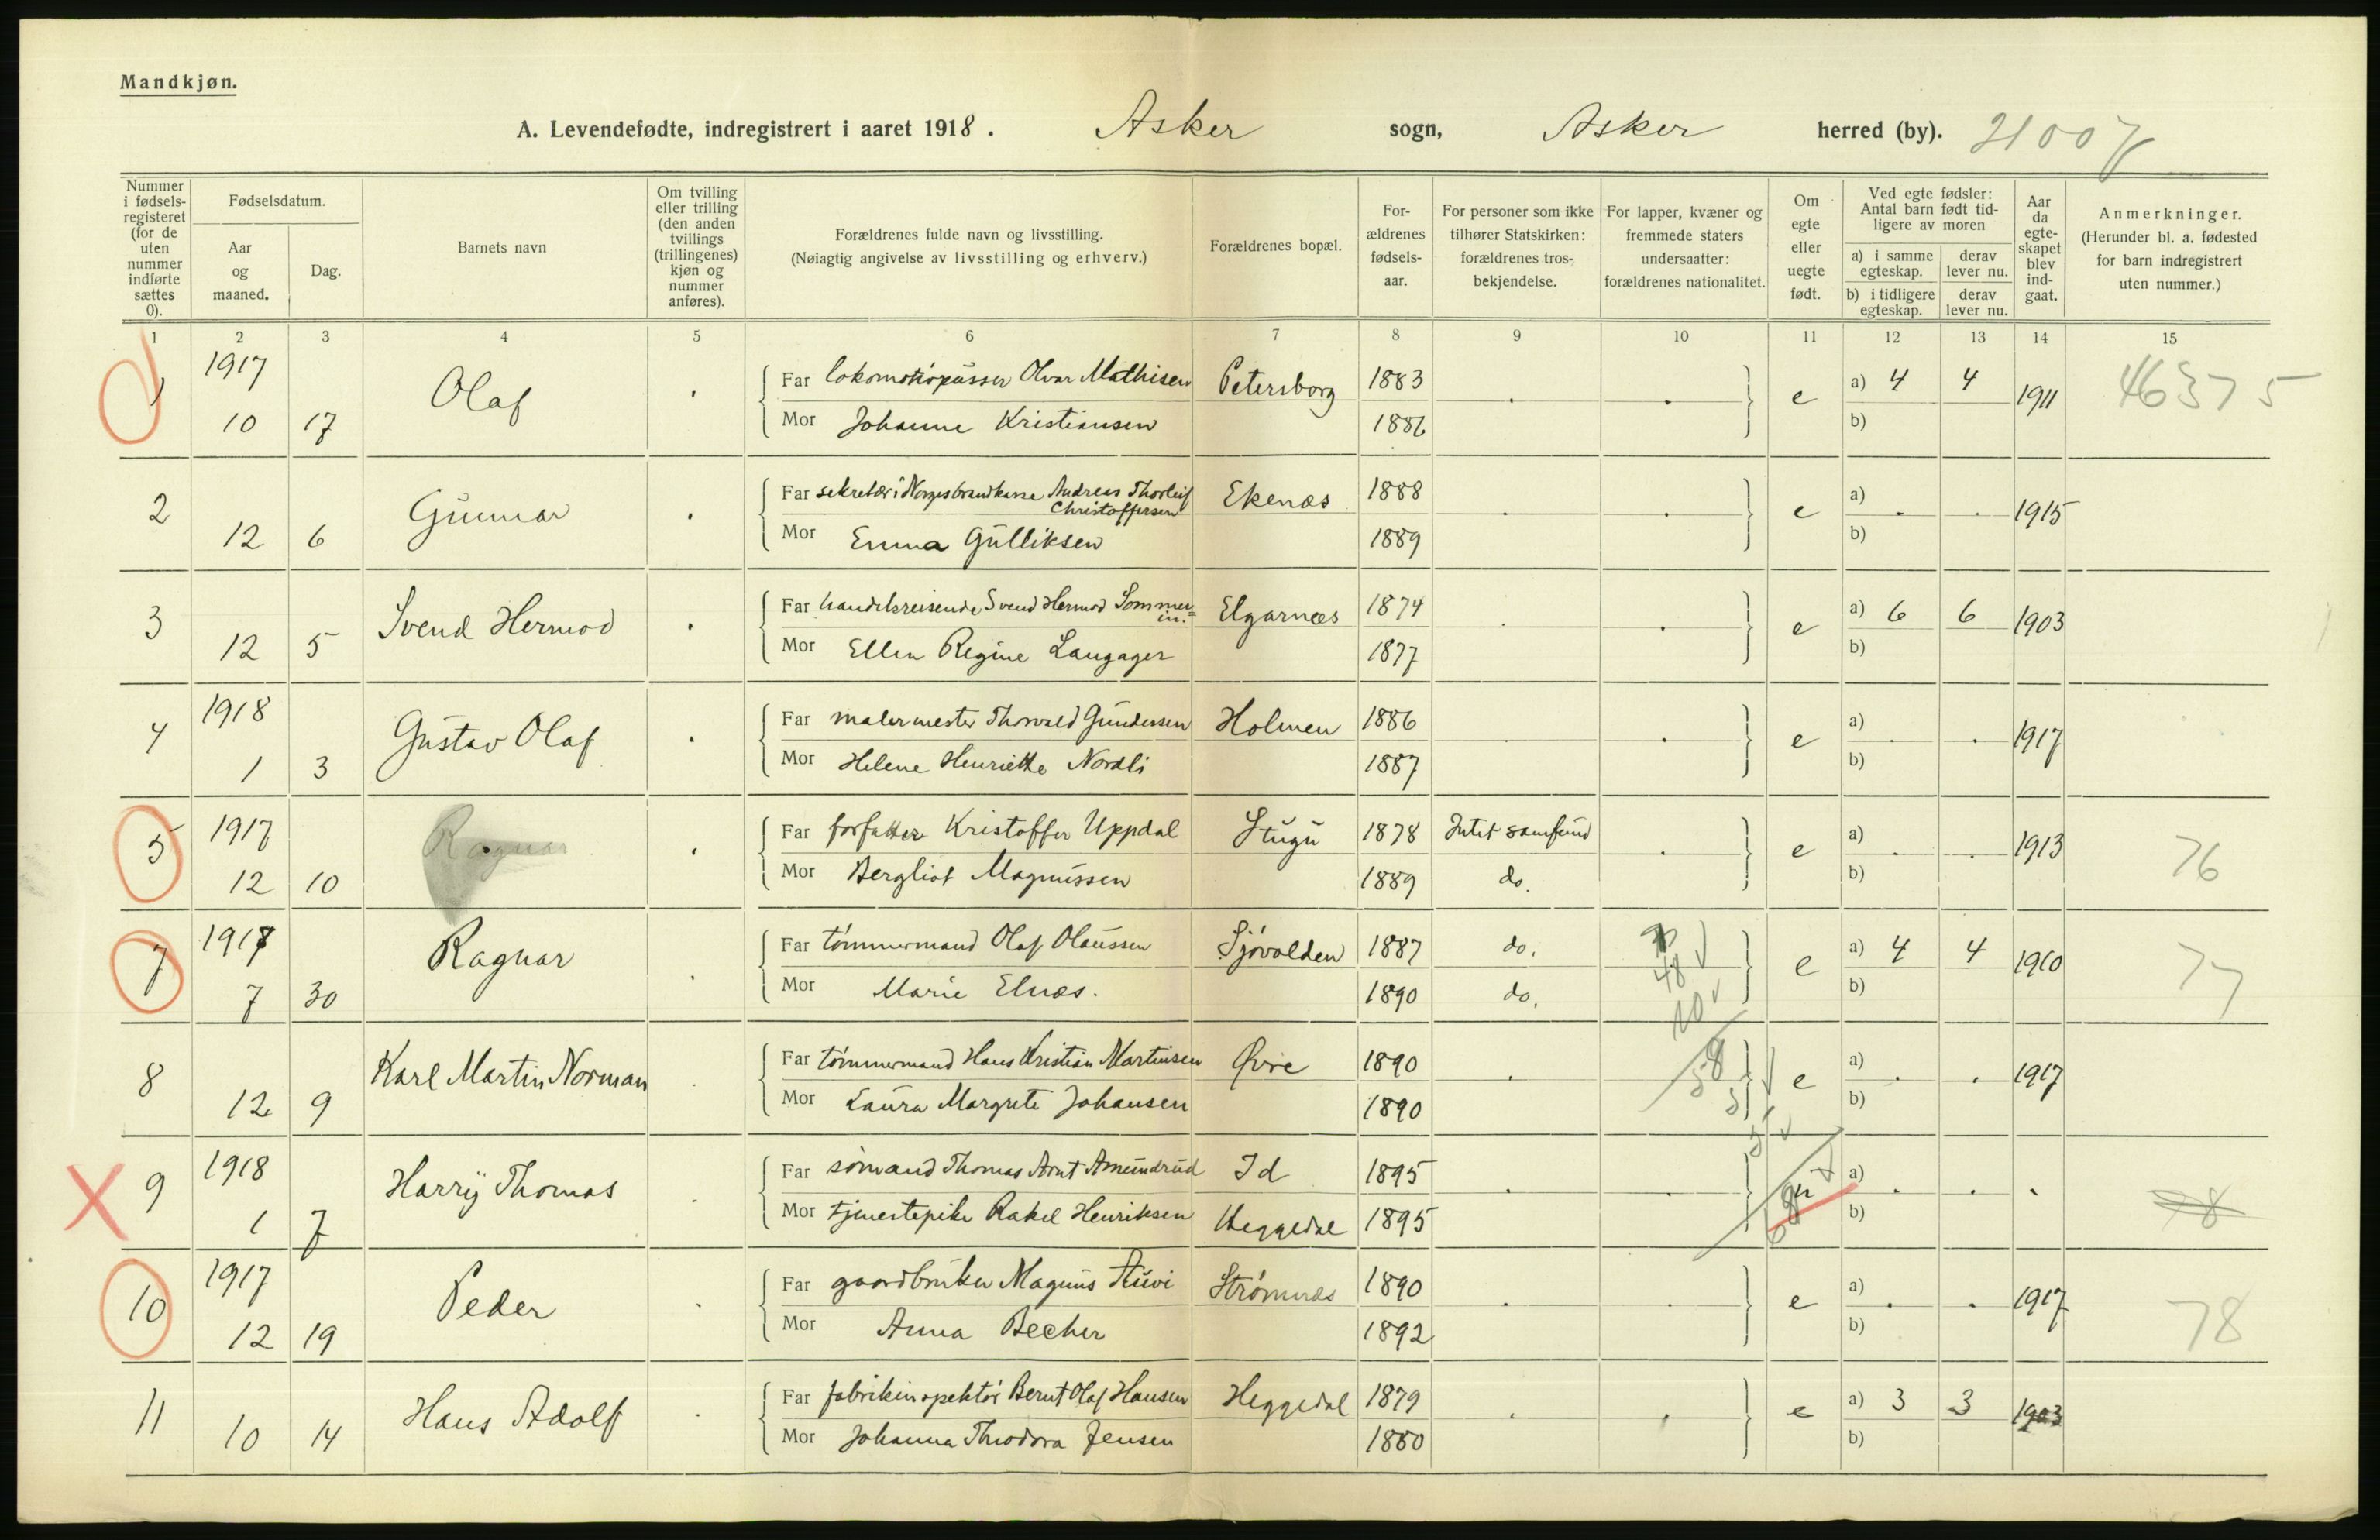 Mandkjøn.
A. Levendefødte, indregistrert i aaret 1918. Asker sogn, Asker herred (by). 21007
Nummer i fødsels-registeret (for de uten nummer indførte sættes 0).
Fødselsdatum.
Aar og maaned.
Dag.
Barnets navn
Om tvilling eller trilling (den anden tvillings (trillingenes) kjøn og nummer anføres).
Forældrenes fulde navn og livsstilling.
(Nøiagtig angivelse av livsstilling og erhverv.)
Forældrenes bopæl.
For-ældrenes fødsels-aar.
For personer som ikke tilhører Statskirken: forældrenes tros-bekjendelse.
For lapper, kvæner og fremmede staters undersaatter: forældrenes nationalitet.
Om egte eller uegte født.
Ved egte fødsler: Antal barn født tid-ligere av moren
a) i samme egteskap. derav lever nu.
b) i tidligere egteskap. derav lever nu.
Aar da egte-skapet blev ind-gaat.
Anmerkninger.
(Herunder bl. a. fødested for barn indregistrert uten nummer.)
1 2 3 4 5 6 7 8 9 10 11 12 13 14 15
1 1917 10 17 Olaf . Far lokomotivpusser Olvar Mathisen Petersborg 1883 . . e a) 4 4 1911 46375
Mor Johanne Kristiansen 1886 b)
2 12 6 Gunnar . Far sekretær i Norges brandkasse Andreas Thorleif Christoffersen Ekenæs 1888 . . e a) . . 1915
Mor Emma Gulliksen 1889 b)
3 12 5 Svend Hermod . Far handelsreisende Svend Hermod Sommer= in. Elgarnæs 1874 . . e a) 6 6 1903
Mor Ellen Regine Langager 1877 b)
4 1918 1 3 Gustav Olaf . Far malermester Thorvald Gundersen Holmen 1886 . . e a) . . 1917
Mor Helene Henriette Nordli 1887 b)
5 1917 12 10 Ragnar . Far forfatter Kristoffer Uppdal Stugu 1878 Intet samfund . e a) . . 1913 76
Mor Bergliot Magnussen 1889 do. b)
7 1917 7 30 Ragnar . Far tømmermand Olaf Olaussen Sjøvolden 1887 do. 48 e a) 4 4 1910 77
Mor Marie Elnæs. 1890 do. 10 b)
8 12 9 Karl Martin Norman . Far tømmermand Hans Kristian Martinsen Øvre 1890 . 58 e a) . . 1917
Mor Laura Margrete Johansen 1890 b)
9 1918 1 7 Harry Thomas . Far sømand Thomas Arnt Amundrud Id 1895 . . u a) . . . 78
Mor tjenestepike Rakel Henriksen Heggedal 1895 b)
10 1917 12 19 Peder . Far gaardbruker Magnus Stuvi Strømnæs 1890 . . e a) . . 1917 78
Mor Anna Becher 1892 b)
11 10 14 Hans Adolf . Far fabrikinspektør Bernt Olaf Hansen Heggedal 1879 . . e a) 3 3 1903
Mor Johanna Theodora Jensen 1880 b)